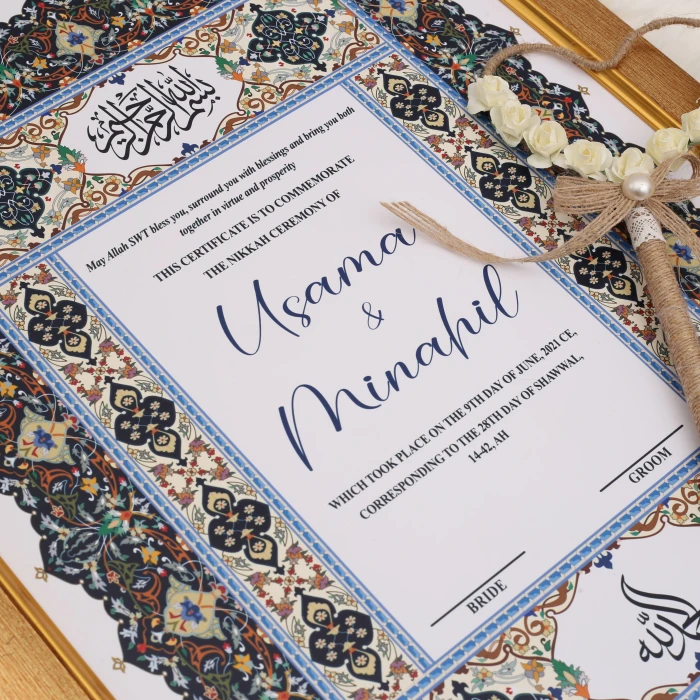 بسم الله الرحمن الرحيم
May Allah SWT bless you, surround you with blessings and bring you both
together in virtue and prosperity
THIS CERTIFICATE IS TO COMMEMORATE
THE NIKKAH CEREMONY OF
Usama
&
Minahil
WHICH TOOK PLACE ON THE 9TH DAY OF JUNE, 2021 CE,
CORRESPONDING TO THE 28TH DAY OF SHAWWAL,
14-42, AH
GROOM
BRIDE